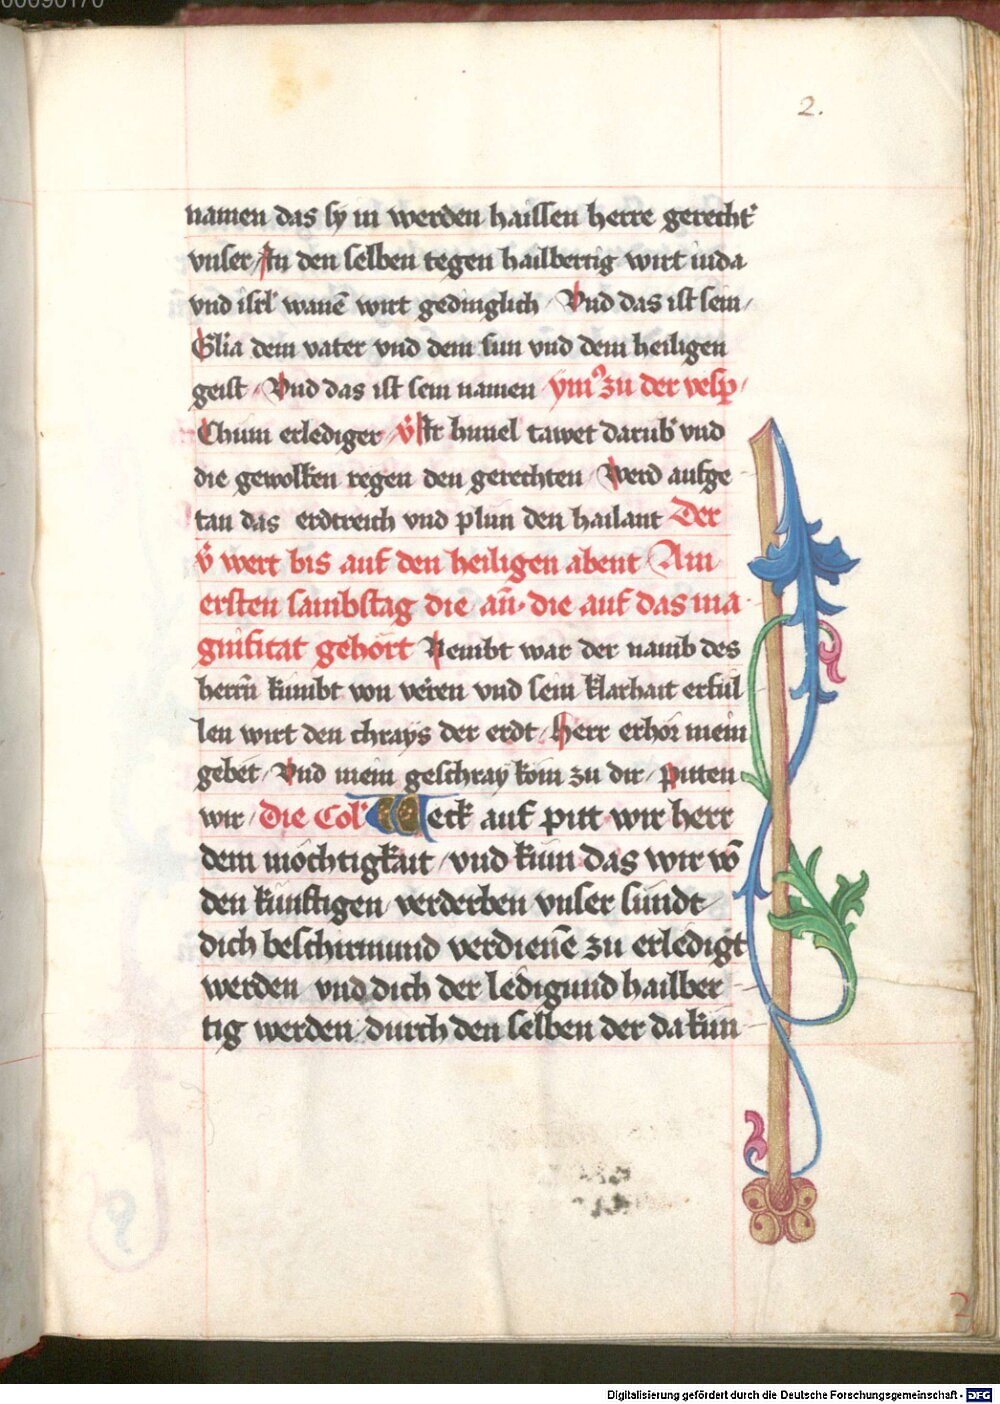 00090170
2.
namen das sy in werden haissen herre gerecht
vnser / In den selben tegen hailbertig wirt iuda
vnd isrl wanē wirt gedinglich / Vnd das ist sein /
Glia dem vater vnd dem sun vnd dem heiligen
geist / Vnd das ist sein namen / ym⁹ zu der vesp /
Chum erlediger / v̄ Ir himel tawet darub vnd
die gewolken regen den gerechten / Werd aufge
tan das erdtreich vnd plun den hailant Der
v̄ wert bis auf den heiligen abent / Am
ersten sambstag die an̄ · die auf das ma
gnificat gehört Nembt war der namb des
herrn̄ kumbt von veren vnd sein klarhait erfül
len wirt den chrays der erdt / Herr erhör mein
gebet / Vnd mein geschray kom zu dir / pitten
wir / Die Col' Weck auf pitt wir herr
dein möchtigkait / vnd kum das wir vō
den künftigen verderben vnser sündt /
dich beschirmund verdienē zu erledigt
werden vnd dich der ledigund hailber
tig werden / durch den selben der da kun
2
Digitalisierung gefördert durch die Deutsche Forschungsgemeinschaft - DFG